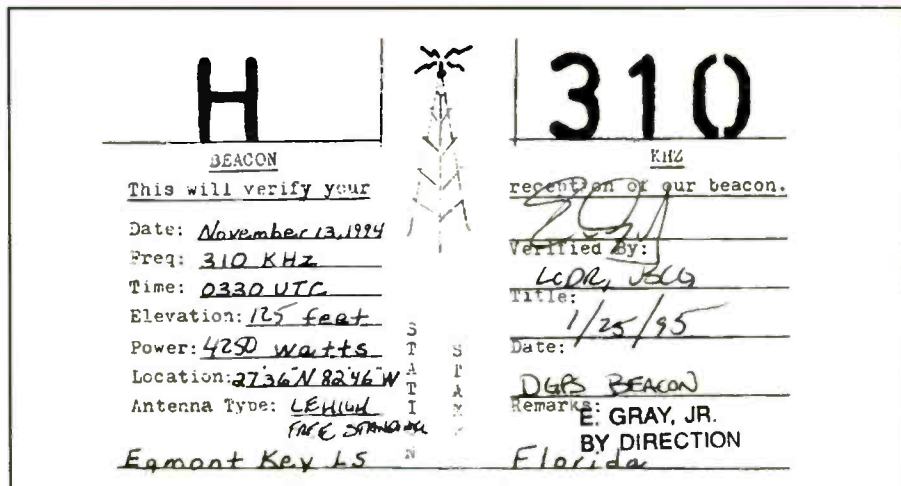 H
BEACON
This will verify your
Date: November 13, 1994
Freq: 310 KHz
Time: 0330 UTC
Elevation: 125 feet
Power: 4250 watts
Location: 27°36"N 82°46"W
Antenna Type: LEHIGH
FREE STANDING
Egmont Key LS
STATION
STAMP
310
KHZ
reception of our beacon.
Verified By:
LCDR, USCG
Title:
1/25/95
Date:
DGPS BEACON
Remarks:
E. GRAY, JR.
BY DIRECTION
Florida